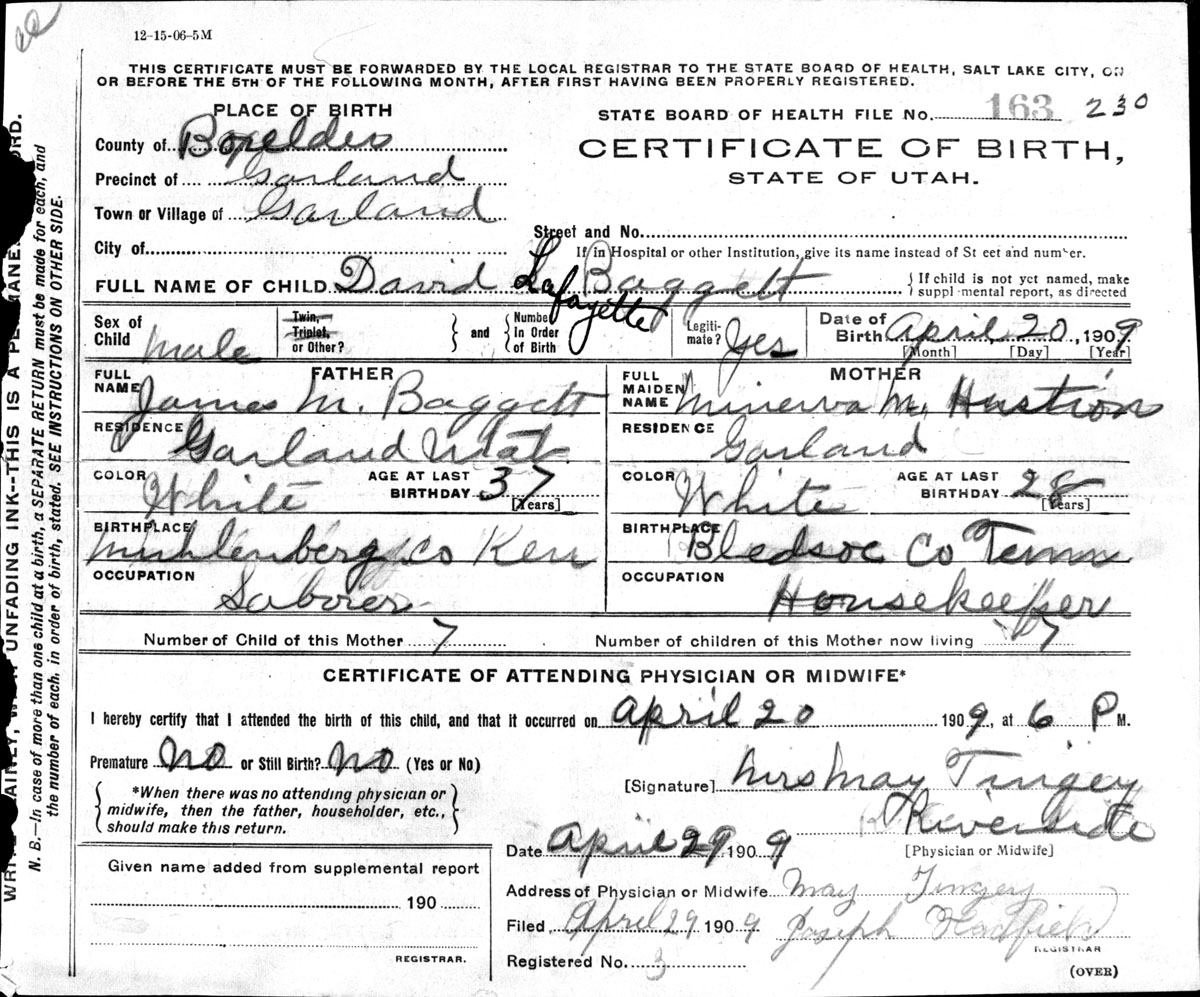 12-15-06-5M
THIS CERTIFICATE MUST BE FORWARDED BY THE LOCAL REGISTRAR TO THE STATE BOARD OF HEALTH, SALT LAKE CITY, ON
OR BEFORE THE 5TH OF THE FOLLOWING MONTH, AFTER FIRST HAVING BEEN PROPERLY REGISTERED.
PLACE OF BIRTH
STATE BOARD OF HEALTH FILE No. 163 230
County of Boxelder
CERTIFICATE OF BIRTH,
Precinct of Garland
STATE OF UTAH.
Town or Village of Garland
Street and No.
City of
If in Hospital or other Institution, give its name instead of St eet and number.
FULL NAME OF CHILD David Lafayette Baggett
If child is not yet named, make
suppl mental report, as directed
Sex of Child Male
Twin, Triplet, or Other?
and
Number In Order of Birth
Legiti-mate? Yes
Date of Birth April, 20, 1909
[Month] [Day] [Year]
FATHER
FULL NAME James M. Baggett
RESIDENCE Garland Utah
COLOR White
AGE AT LAST BIRTHDAY 37
[Years]
BIRTHPLACE Muhlenberg Co Ken
OCCUPATION Laborer
MOTHER
FULL MAIDEN NAME Minerva M.
RESIDENCE Garland
COLOR White
AGE AT LAST BIRTHDAY 28
[Years]
BIRTHPLACE Bledsoe Co Tenn
OCCUPATION Housekeeper
Number of Child of this Mother 7
Number of children of this Mother now living 7
CERTIFICATE OF ATTENDING PHYSICIAN OR MIDWIFE*
I hereby certify that I attended the birth of this child, and that it occurred on April 20 1909, at 6 P M.
Premature No or Still Birth? No (Yes or No)
[Signature] Mrs May Tingey
Riverside
[Physician or Midwife]
*When there was no attending physician or
midwife, then the father, householder, etc.,
should make this return.
Date April 29 1909
Given name added from supplemental report
190
REGISTRAR.
Address of Physician or Midwife May Tingey
Filed April 29 1909 Joseph Hadfield
REGISTRAR
Registered No. 3
(OVER)
UNFADING INK--THIS IS A
N. B.—In case of more than one child at a birth, a SEPARATE RETURN must be made for each, and
the number of each, in order of birth, stated. SEE INSTRUCTIONS ON OTHER SIDE.